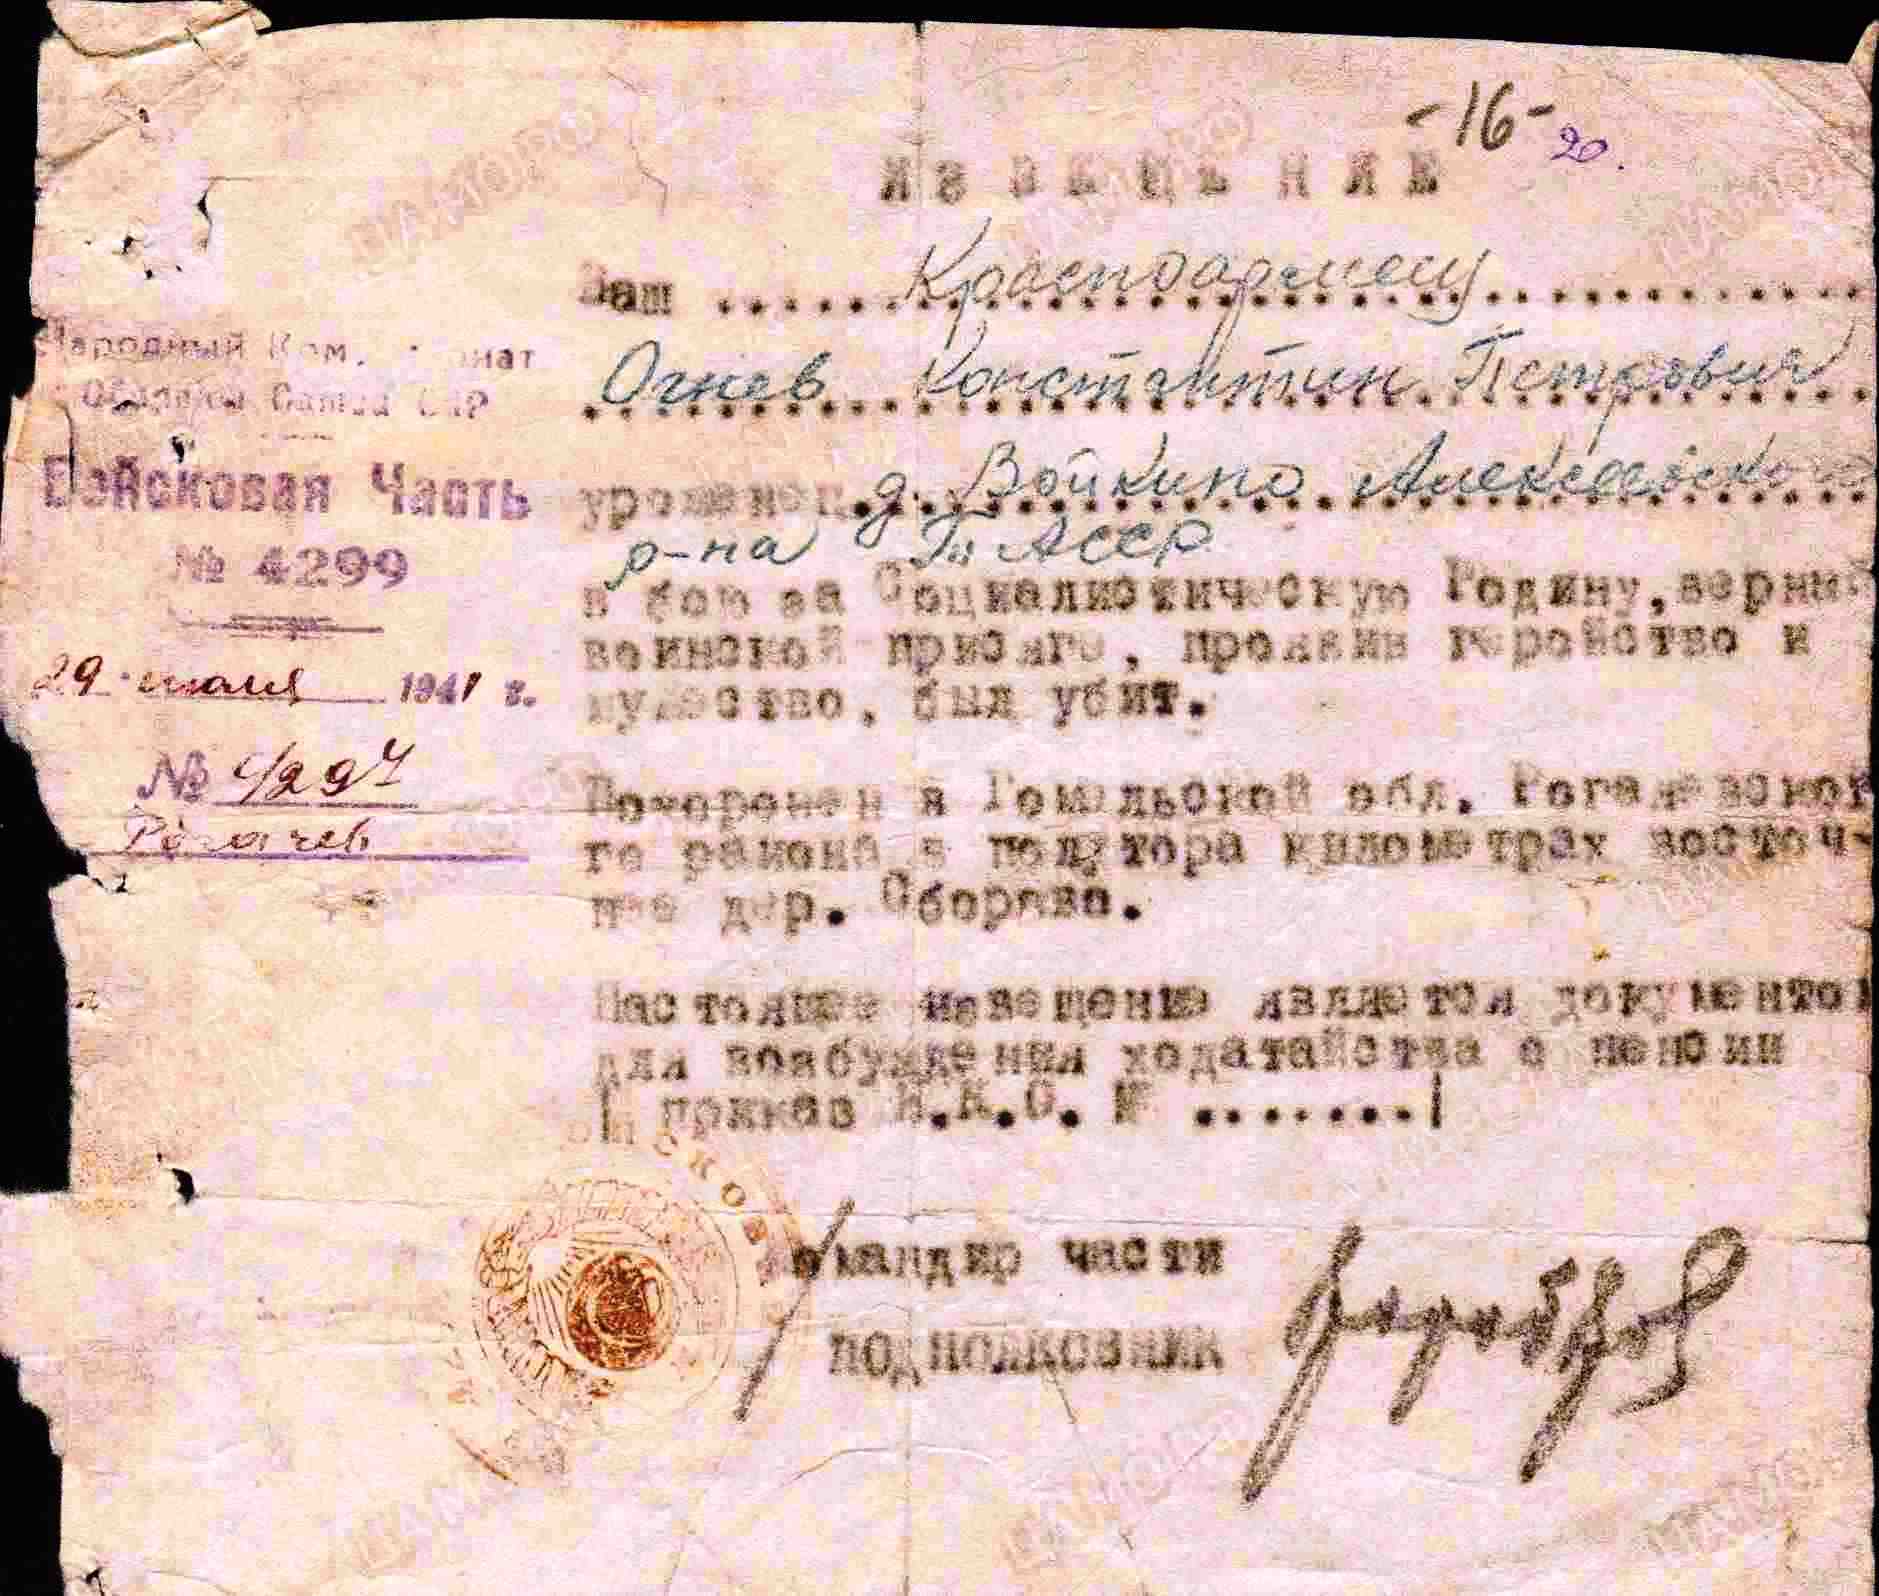 -16-
20.
ИЗВЕЩЕНИЕ
Ваш ..... Красноармеец
Огнев Константин Петрович
уроженец д. Войкино Алексеевско
р-на Т. АССР
в бою за Социалистическую Родину, верный
воинской присяге, проявив геройство и
мужество, был убит.
Похоронен в Гомельской обл. Рогачевског
го района в полутора километрах восточ-
нее дер.
Настоящее извещение является документом
для возбуждения ходатайства о пенсии
/ приказ Н.К.О. № ......./
Командир части
подполковник
Народный Ком. нат
Обороны Союза ССР
Войсковая Часть
№ 4299
29 июля 1941 г.
№
Рогачев
ЦАМО.РФ